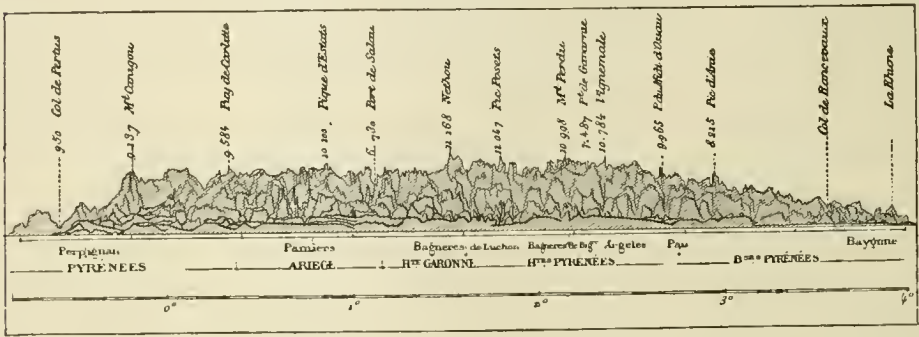 950 Col de Pertus
9.137 Mt Canigou
9.584 Puy de Carlitte
10.201. Pique d'Estats
6.730 Port de Salau
11.168 Nethou
11.047 Pic Posets
10.998 Mt Perdu
7.487 Pt de Gavarnie
10.784 Vignemale
9.965 P. du Midi d'Ossau
8.215 Pic d'Anie
Col de Roncevaux
La Rhune
Perpignan Pamiers Bagneres de Luchon Bagneres de Bigre Argeles Pau Bayonne
PYRENEES ARIEGE HTE GARONNE HTES PYRENÉES BSSES PYRÉNÉES
0° 1° 2° 3° 4°